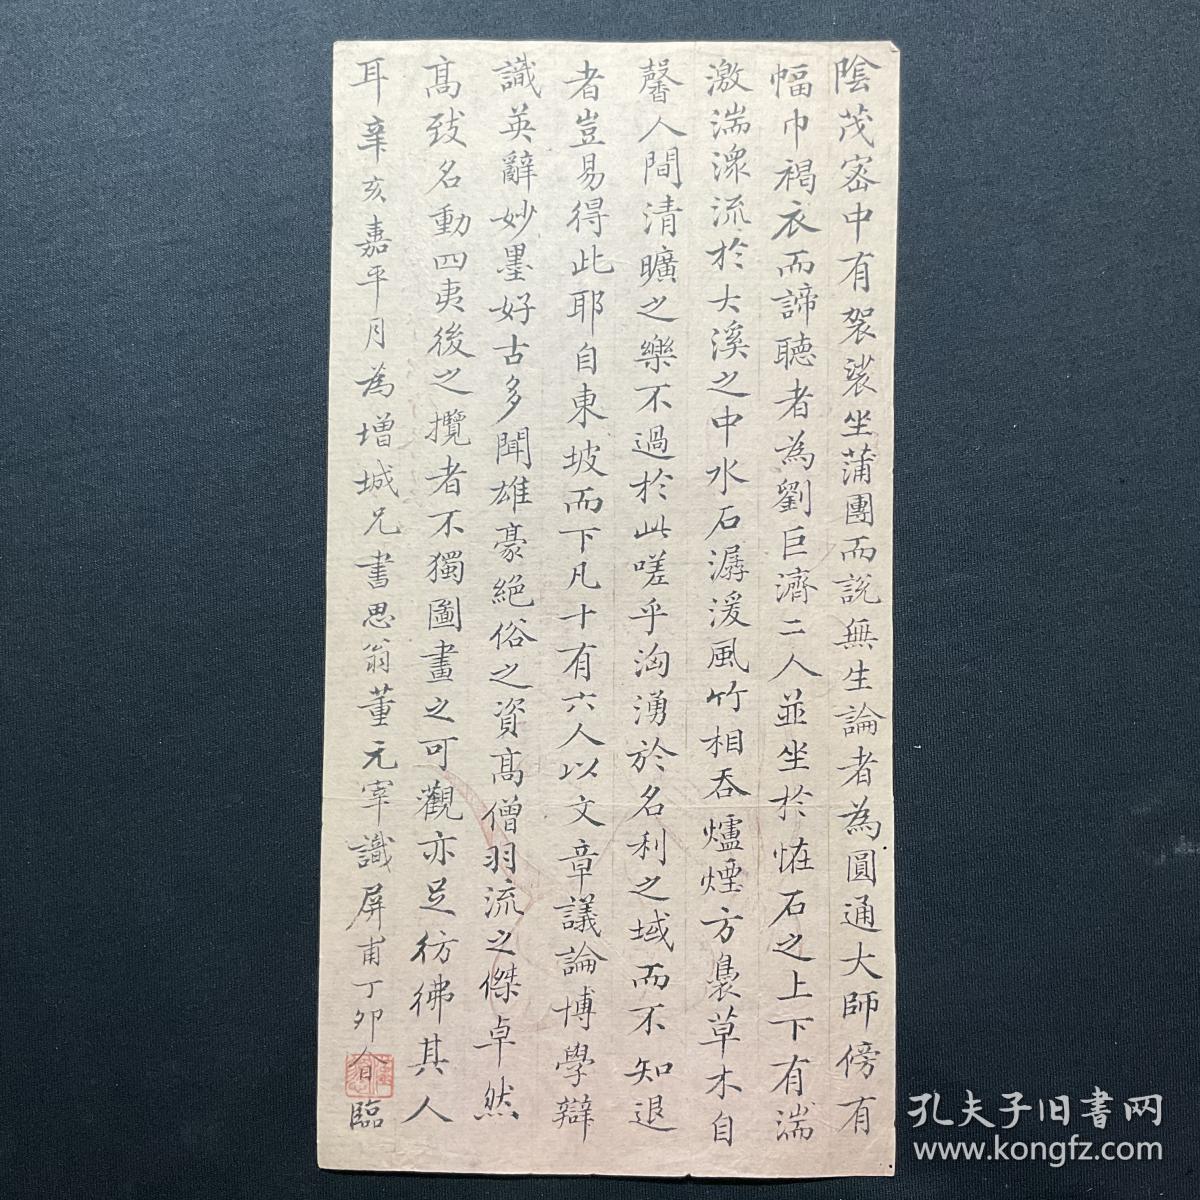 陰茂宻中有袈裟坐蒲團而說無生論者為圓通大師傍有
幅巾褐衣而諦聴者為劉巨濟二人並坐於恠石之上下有湍
激湍潨流於大溪之中水石潺湲風竹相吞爐煙方裊草木自
馨人間清曠之樂不過於此嗟乎洶湧於名利之域而不知退
者豈易得此耶自東坡而下凡十有六人以文章議論博學辯
識英辭妙墨好古多聞雄豪絕俗之資髙僧羽流之傑卓然
髙致名動四夷後之攬者不獨圖畫之可觀亦足彷彿其人
耳辛亥嘉平月為增城兄書思翁董元宰識屏甫丁卯
臨
孔夫子旧書网
www.kongfz.com